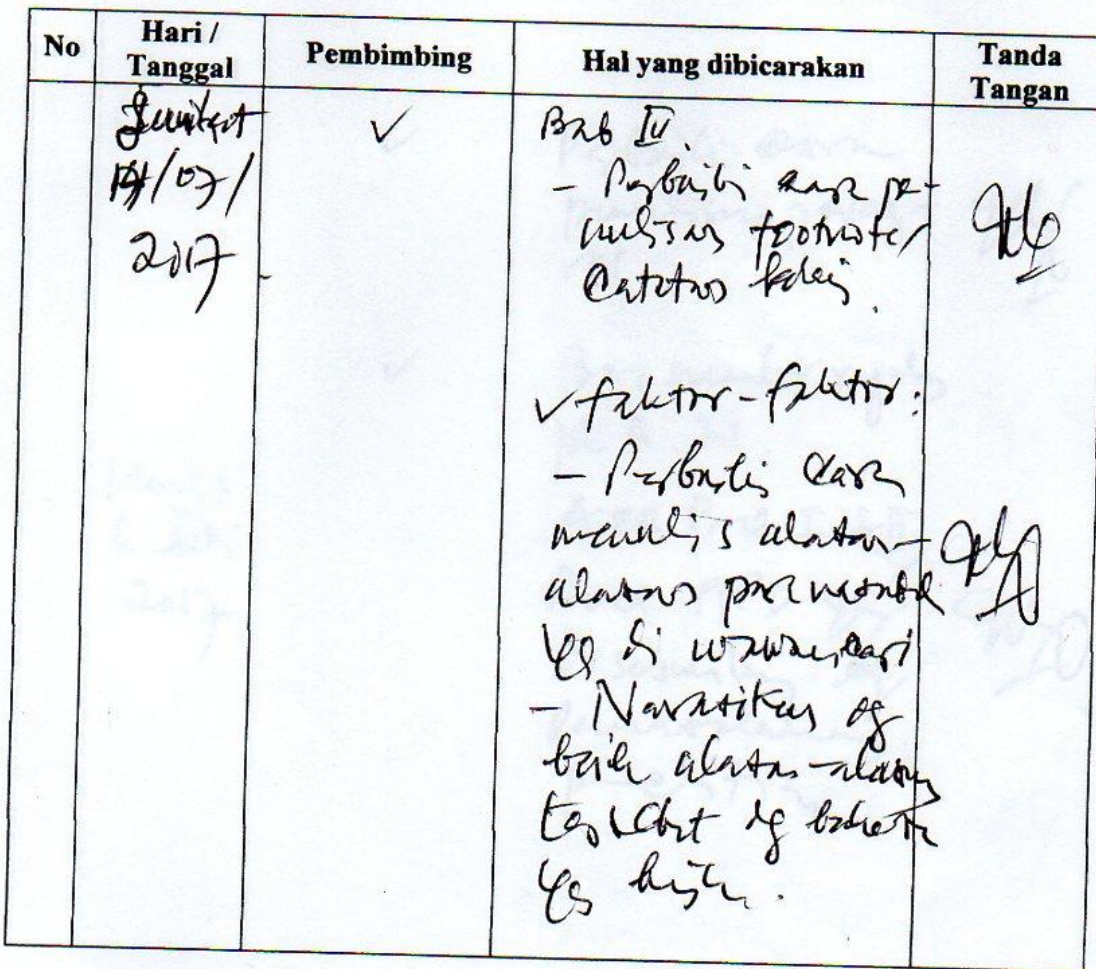 No
Hari /
Tanggal
Pembimbing
Hal yang dibicarakan
Tanda
Tangan
/07/
2017
✓
Bab IV.
- Perbaiki cara pe-
nulisan footnote/
Catatan kaki.
✓ faktor-faktor:
- Perbaiki cara
menulis alasan-
alasan para
yg di wawancari
- Narasikan dg
baik alasan-alasan
tersebut dg bahasa
yg